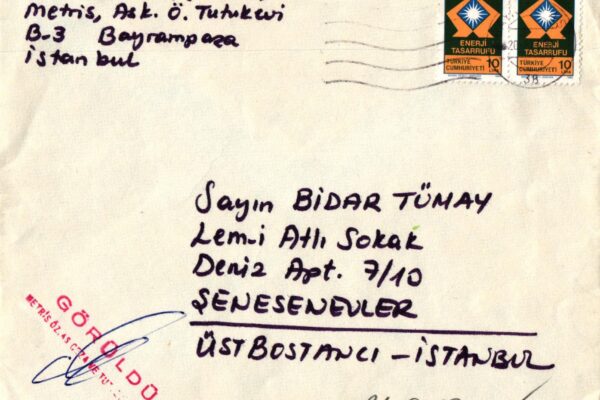 Metris, Ask. Ö. Tutukevi
B-3 Bayrampaza
İstanbul
ENERJİ
TASARRUFU
TÜRKİYE
CUMHURİYETİ 10
LİRA
ENERJİ
TASARRUFU
TÜRKİYE
CUMHURİYETİ 10
LİRA
Sayın BİDAR TÜMAY
Lem-i Atlı Sokak
Deniz Apt. 7/10
ŞENESENEVLER
ÜSTBOSTANCI - İSTANBUL
GÖRÜLDÜ
METRİS ÖZ. AS